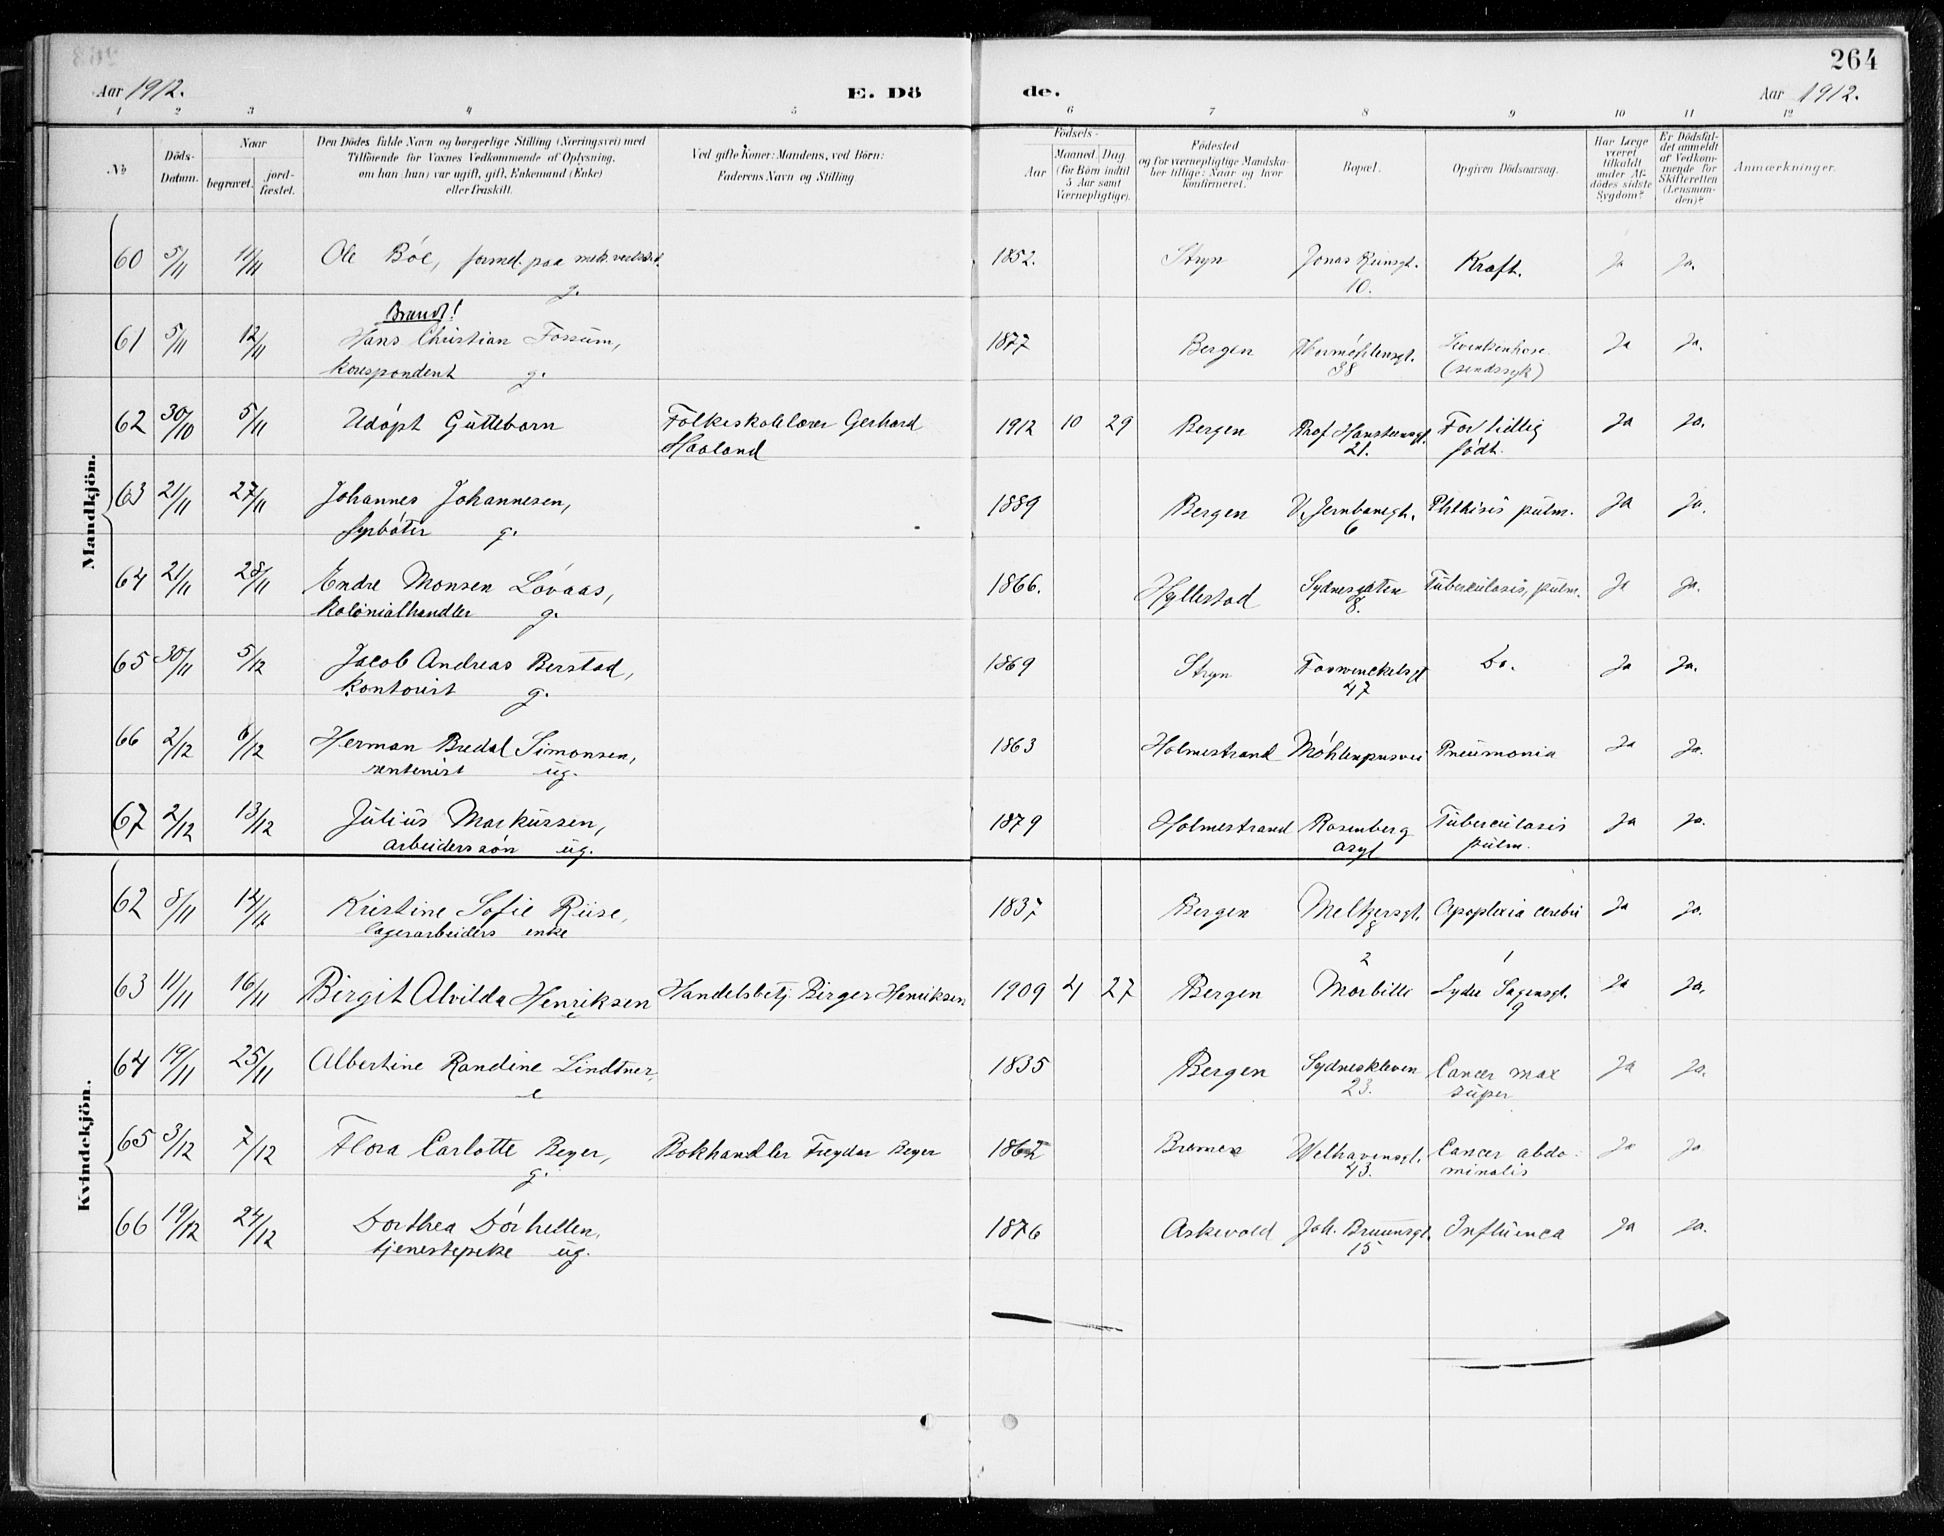 264
Aar 1912.
E. Dö de.
Aar 1912.
1 2 3 4 5 6 7 8 9 10 11 12
No
Döds-Datum.
Naar
begravet.
jord-fæstet.
Den Dödes fulde Navn og borgerlige Stilling (Næringsvei) med
Tilföiende for Voxnes Vedkommende af Oplysning,
om han (hun) var ugift, gift, Enkemand (Enke)
eller fraskilt.
Ved gifte Koner: Mandens, ved Börn:
Faderens Navn og Stilling
Födsels-
Aar
Maaned Dag
(for Börn indtil
5 Aar samt
Værnepligtige).
Födested
og for værnepligtige Mandska-
ber tillige: Naar og hvor
konfirmeret.
Bopæl.
Opgiven Dödsaarsag.
Har Læge
været
tilkaldt
under Af-
dödes sidste
Sygdom?
Er Dödsfal-
det anmeldt
af Vedkom-
mende for
Skifteretten
(Lensman-
den)?
Anmærkninger.
Mandkjön.
60 5/11 11/11 Ole Böe, formd. paa mek. 1852. Stryn Jonas Reinsgt. Kræft. Ja Ja.
g. 10.
Brandt!
61 5/11 12/11 Hans Christian Fossum, 1877 Bergen Ja Ja.
korrespondent g. 38 (sindssyk)
62 30/10 5/11 Udøpt Guttebarn Folkeskolelærer Gerhard 1912 10 29 Bergen Prof Hansteensgt. For tidlig Ja Ja.
Haaland 21. født.
63 21/11 27/11 Johannes Johannesen, 1889 Bergen V. Jernbanegt. Phthisis pulm. Ja Ja.
fyrbøter g. 6
64 21/11 28/11 Endre Monsen Løvaas, 1866. Hyllestad Sydnesgaten Tuberculosis, pulm. Ja Ja.
kolonialhandler g. 8.
65 30/11 5/12 Jacob Andreas Berstad, 1869 Stryn Fosswinckelsgt Do. Ja Ja.
kontorist g. 47
66 2/12 6/12 Herman Bredal Simonsen, 1863 Holmestrand Møhlenprisvei Pneumonia Ja Ja.
rentenist ug.
67 2/12 13/12 Julius Markussen, 1879 Holmestrand Rosenberg Tuberculosis Ja Ja.
arbeiderssøn ug. asyl pulm.
Kvindekjön.
62 8/11 14/11 Kristine Sofie Riise, 1837 Bergen Meltzersgt. Apoplexia cerebri Ja Ja.
lagerarbeiders enke 8
2 1
63 11/11 16/11 Birgit Alvilda Henriksen Handelsbetj. Birger Henriksen 1909 4 27 Bergen Morbilli Lyder Sagensgt. Ja Ja.
9
64 19/11 25/11 Albertine Randine Lindtner, 1835 Bergen Sydneskleven Cancer max Ja Ja.
e 23. super
65 3/12 7/12 Flora Carlotte Beyer, Bokhandler Freydar Beyer 1862 Bremen Welhavensgt. Cancer abdo- Ja Ja
g. 43. minalis
66 19/12 24/12 Dorthea Dørhellen, 1876 Askevold Joh. Bruunsgt. Influenca Ja Ja.
tjenestepike ug. 15